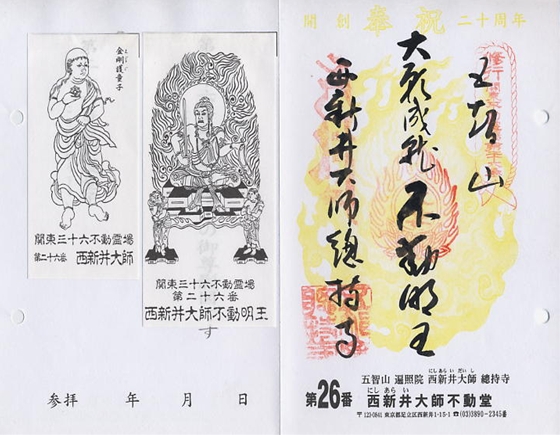 金剛護童子
関東三十六不動霊場
第二十六番 西新井大師
関東三十六不動霊場
第二十六番
西新井大師不動明王
す
参拝 年 月 日
開創 奉祝 二十周年
五智山
大願成就 不動明王
西新井大師總持寺
五智山 遍照院 西新井大師 總持寺
にしあらいだいし
第26番 西新井大師不動堂
にしあらい
〒123-0841 東京都足立区西新井1-15-1 ☎(03)3890-2345番